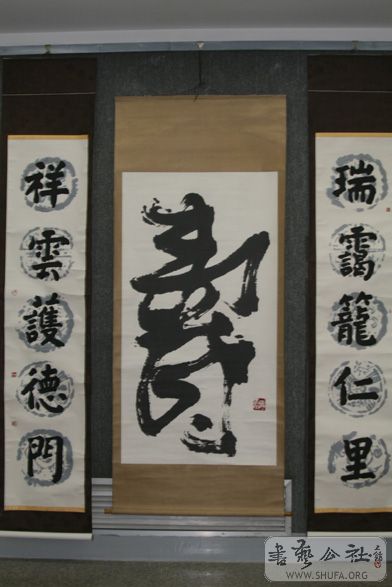 瑞靄籠仁里
壽
祥雲護德門
書藝公社
WWW.SHUFA.ORG